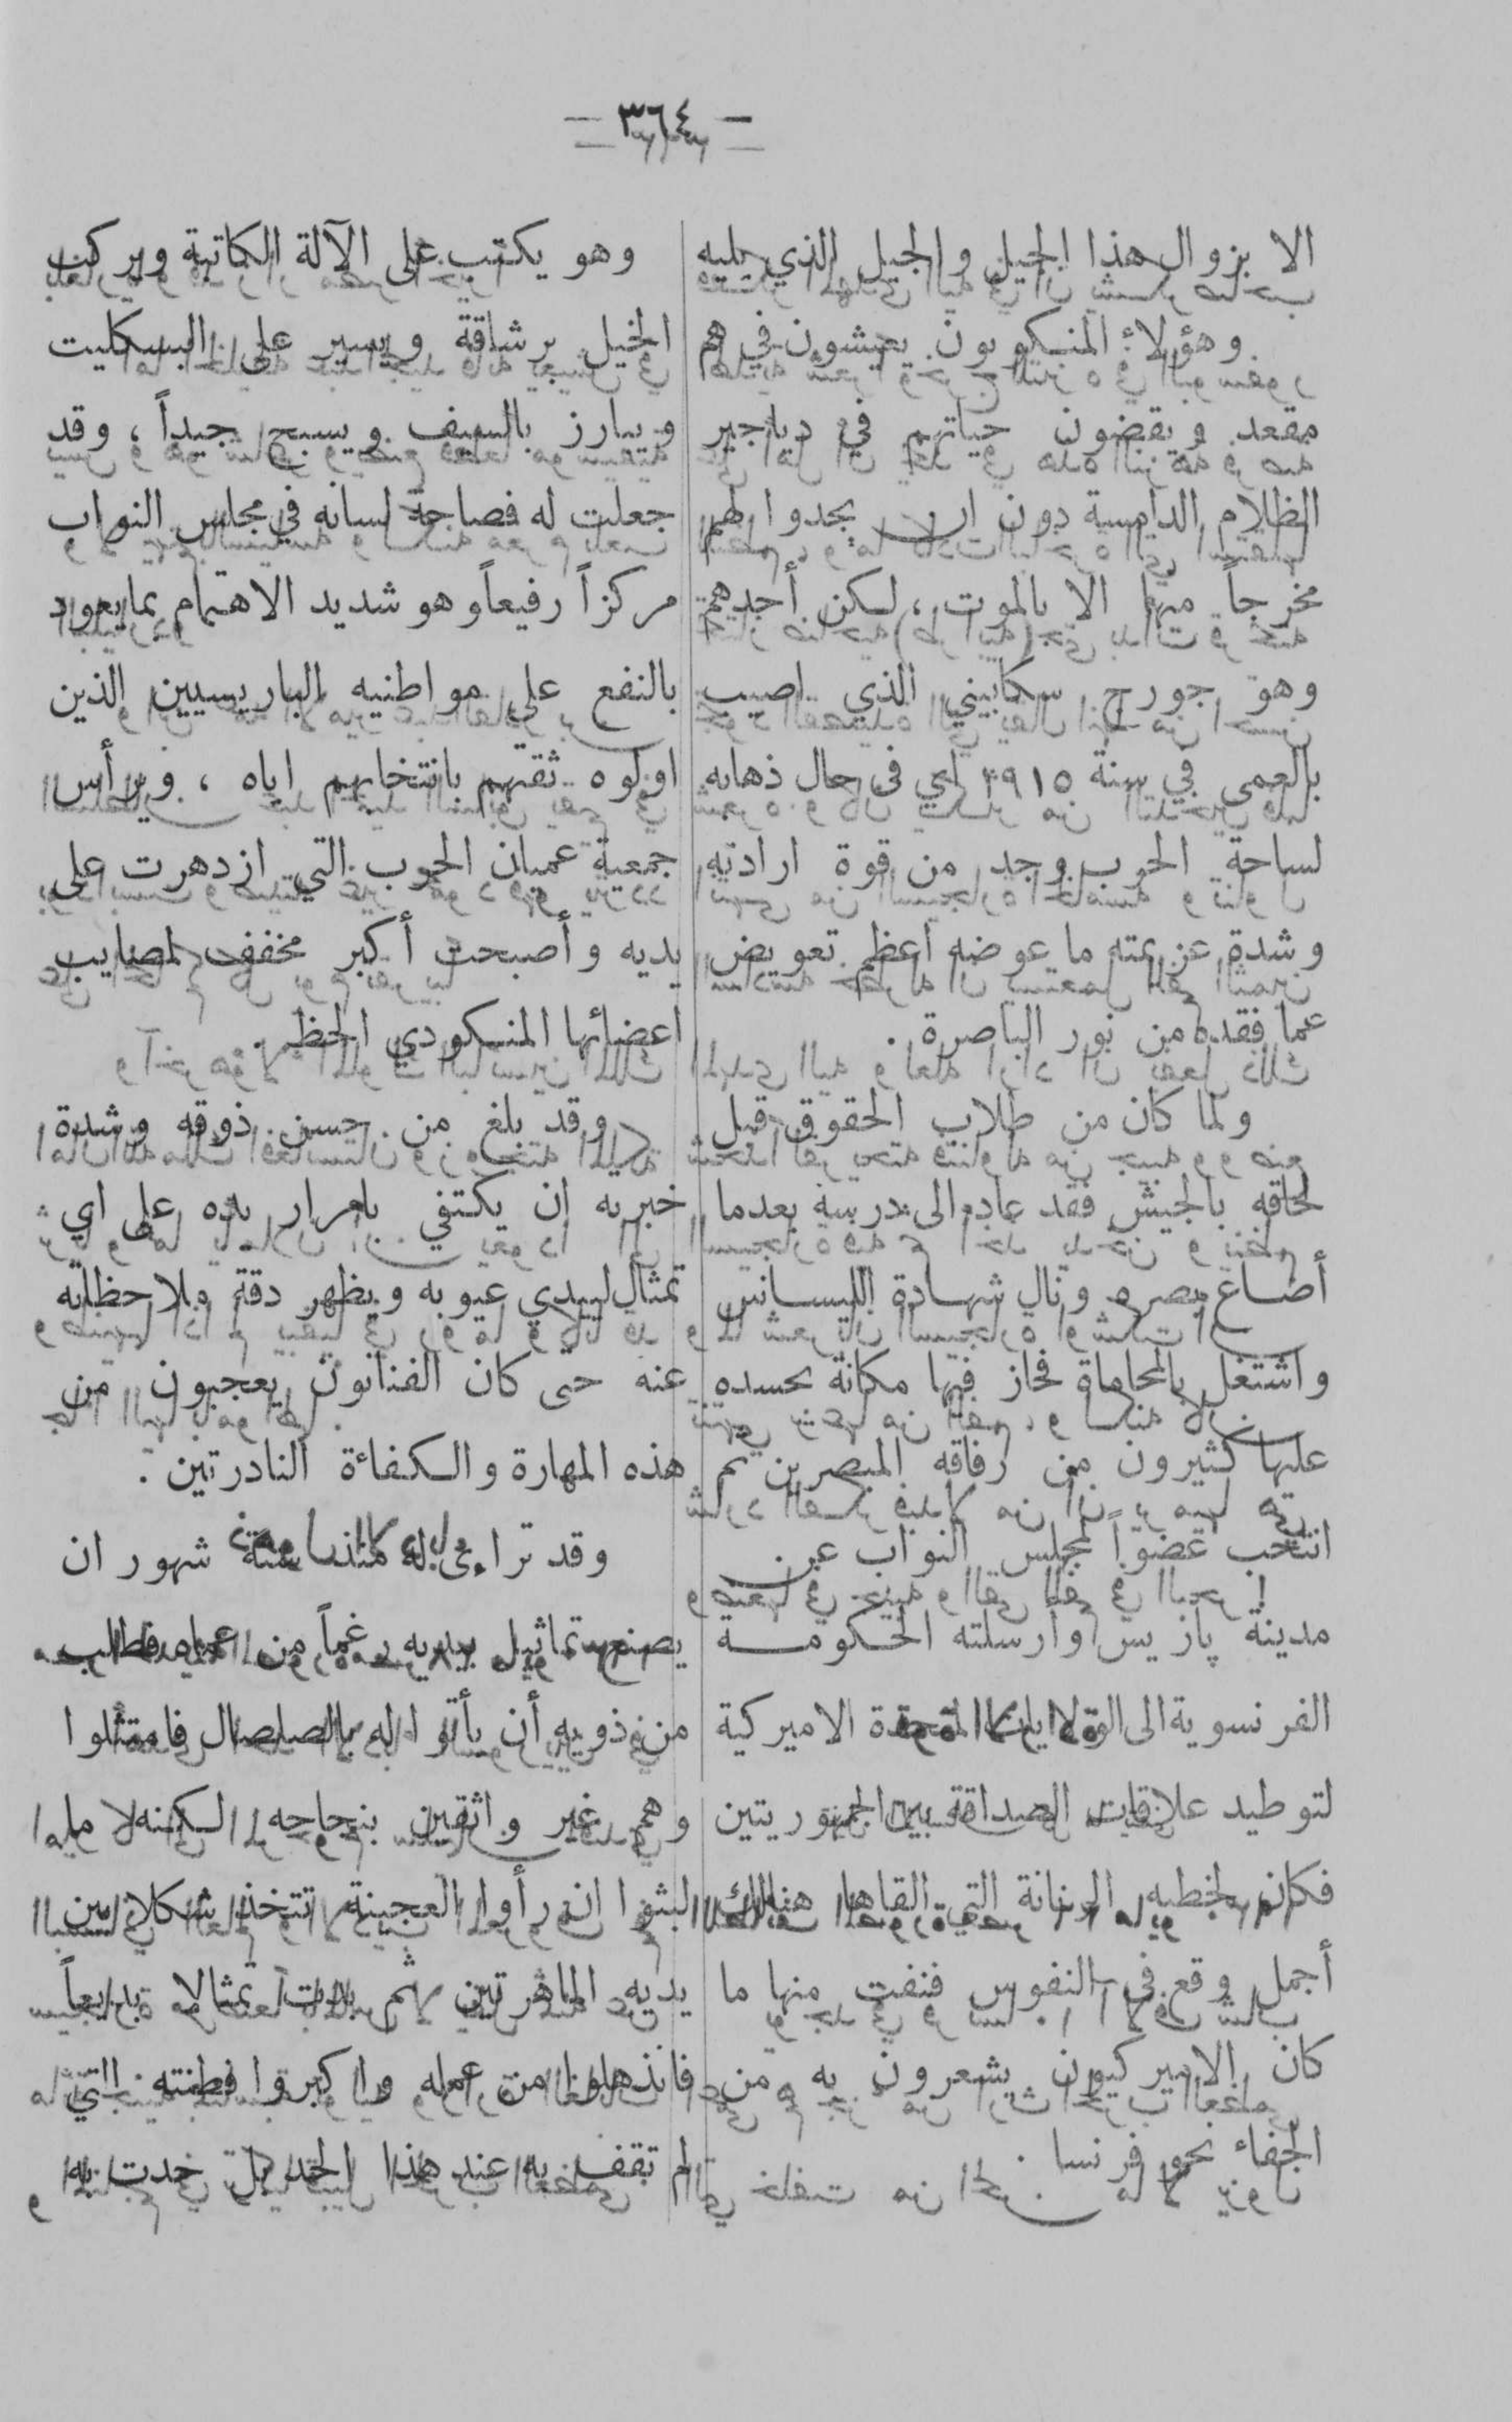 — ٣٦٤ —
الا بزوال هذا الجيل والجيل الذي يليه
وهؤلاء المنكوبون يعيشون في هم
مقعد ويقضون حياتهم في دياجير
الظلام الدامسة دون ان يجدوا لهم
مخرجاً منها الا بالموت ، لكن أحدهم
وهو جورج سكابيني الذي اصيب
بالعمى في سنة ١٩١٥ اي في حال ذهابه
لساحة الحرب وجد من قوة ارادته
وشدة عزيمته ما عوضه اعظم تعويض
عما فقده من نور الباصرة .
ولما كان من طلاب الحقوق قبل
لحاقه بالجيش فقد عاد الى درسه بعدما
أضاع بصره ونال شهادة الليسانس
واشتغل بالمحاماة فحاز فيها مكانة يحسده
عليها كثيرون من رفاقه المبصرين ثم
انتخب عضواً لمجلس النواب عن
مدينة پاريس وأرسلته الحكومة
الفرنسوية الى الولايات المتحدة الاميركية
لتوطيد علاقات الصداقة بين الجمهوريتين
فكان لخطبه الرنانة التي القاها هنالك
أجمل وقع في النفوس فنفت منها ما
كان الاميركيون يشعرون به من
الجفاء نحو فرنسا .
وهو يكتب على الآلة الكاتبة ويركب
الخيل برشاقة ويسير على البسكليت
ويبارز بالسيف ويسبح جيداً ، وقد
جعلت له فصاحة لسانه في مجلس النواب
مركزاً رفيعاً وهو شديد الاهتمام بما يعود
بالنفع على مواطنيه الباريسيين الذين
اولوه ثقتهم بانتخابهم اياه ، ويرأس
جمعية عميان الحرب التي ازدهرت على
يديه وأصبحت أكبر مخفف لمصايب
اعضائها المنكودي الحظ .
وقد بلغ من حسن ذوقه وشدة
خبرته ان يكتفي بامرار يده على اي
تمثال ليبدي عيوبه ويظهر دقة ملاحظاته
عنه حتى كان الفنانون يعجبون من
هذه المهارة والكفاءة النادرتين .
وقد تراءى له منذ ستة شهور ان
يصنع تماثيل بيديه رغماً من عماه فطلب
من ذويه أن يأتوا له بالصلصال فامتثلوا
وهم غير واثقين بنجاحه لكنه لا
لبثوا ان رأوا العجينة تتخذ شكلا بين
يديه الماهرتين ثم بدت تمثالا بديعاً
فانذهلوا من عمله واكبروا فطنته التي
لم تقف به عند هذا الحد بل حدت به